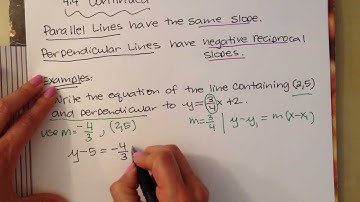 4.4 Continued
Parallel Lines have the same slope.
Perpendicular Lines have negative reciprocal
slopes.
Examples:
Write the equation of the line containing (2,5)
and perpendicular to y=3/4x+2.
use m=-4/3, (2,5)
m=3/4 | y-y₁=m(x-x₁)
y-5=-4/3